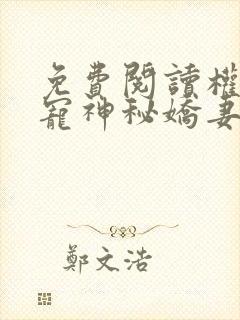 免費閱讀權
寵神秘嬌妻
鄭文浩